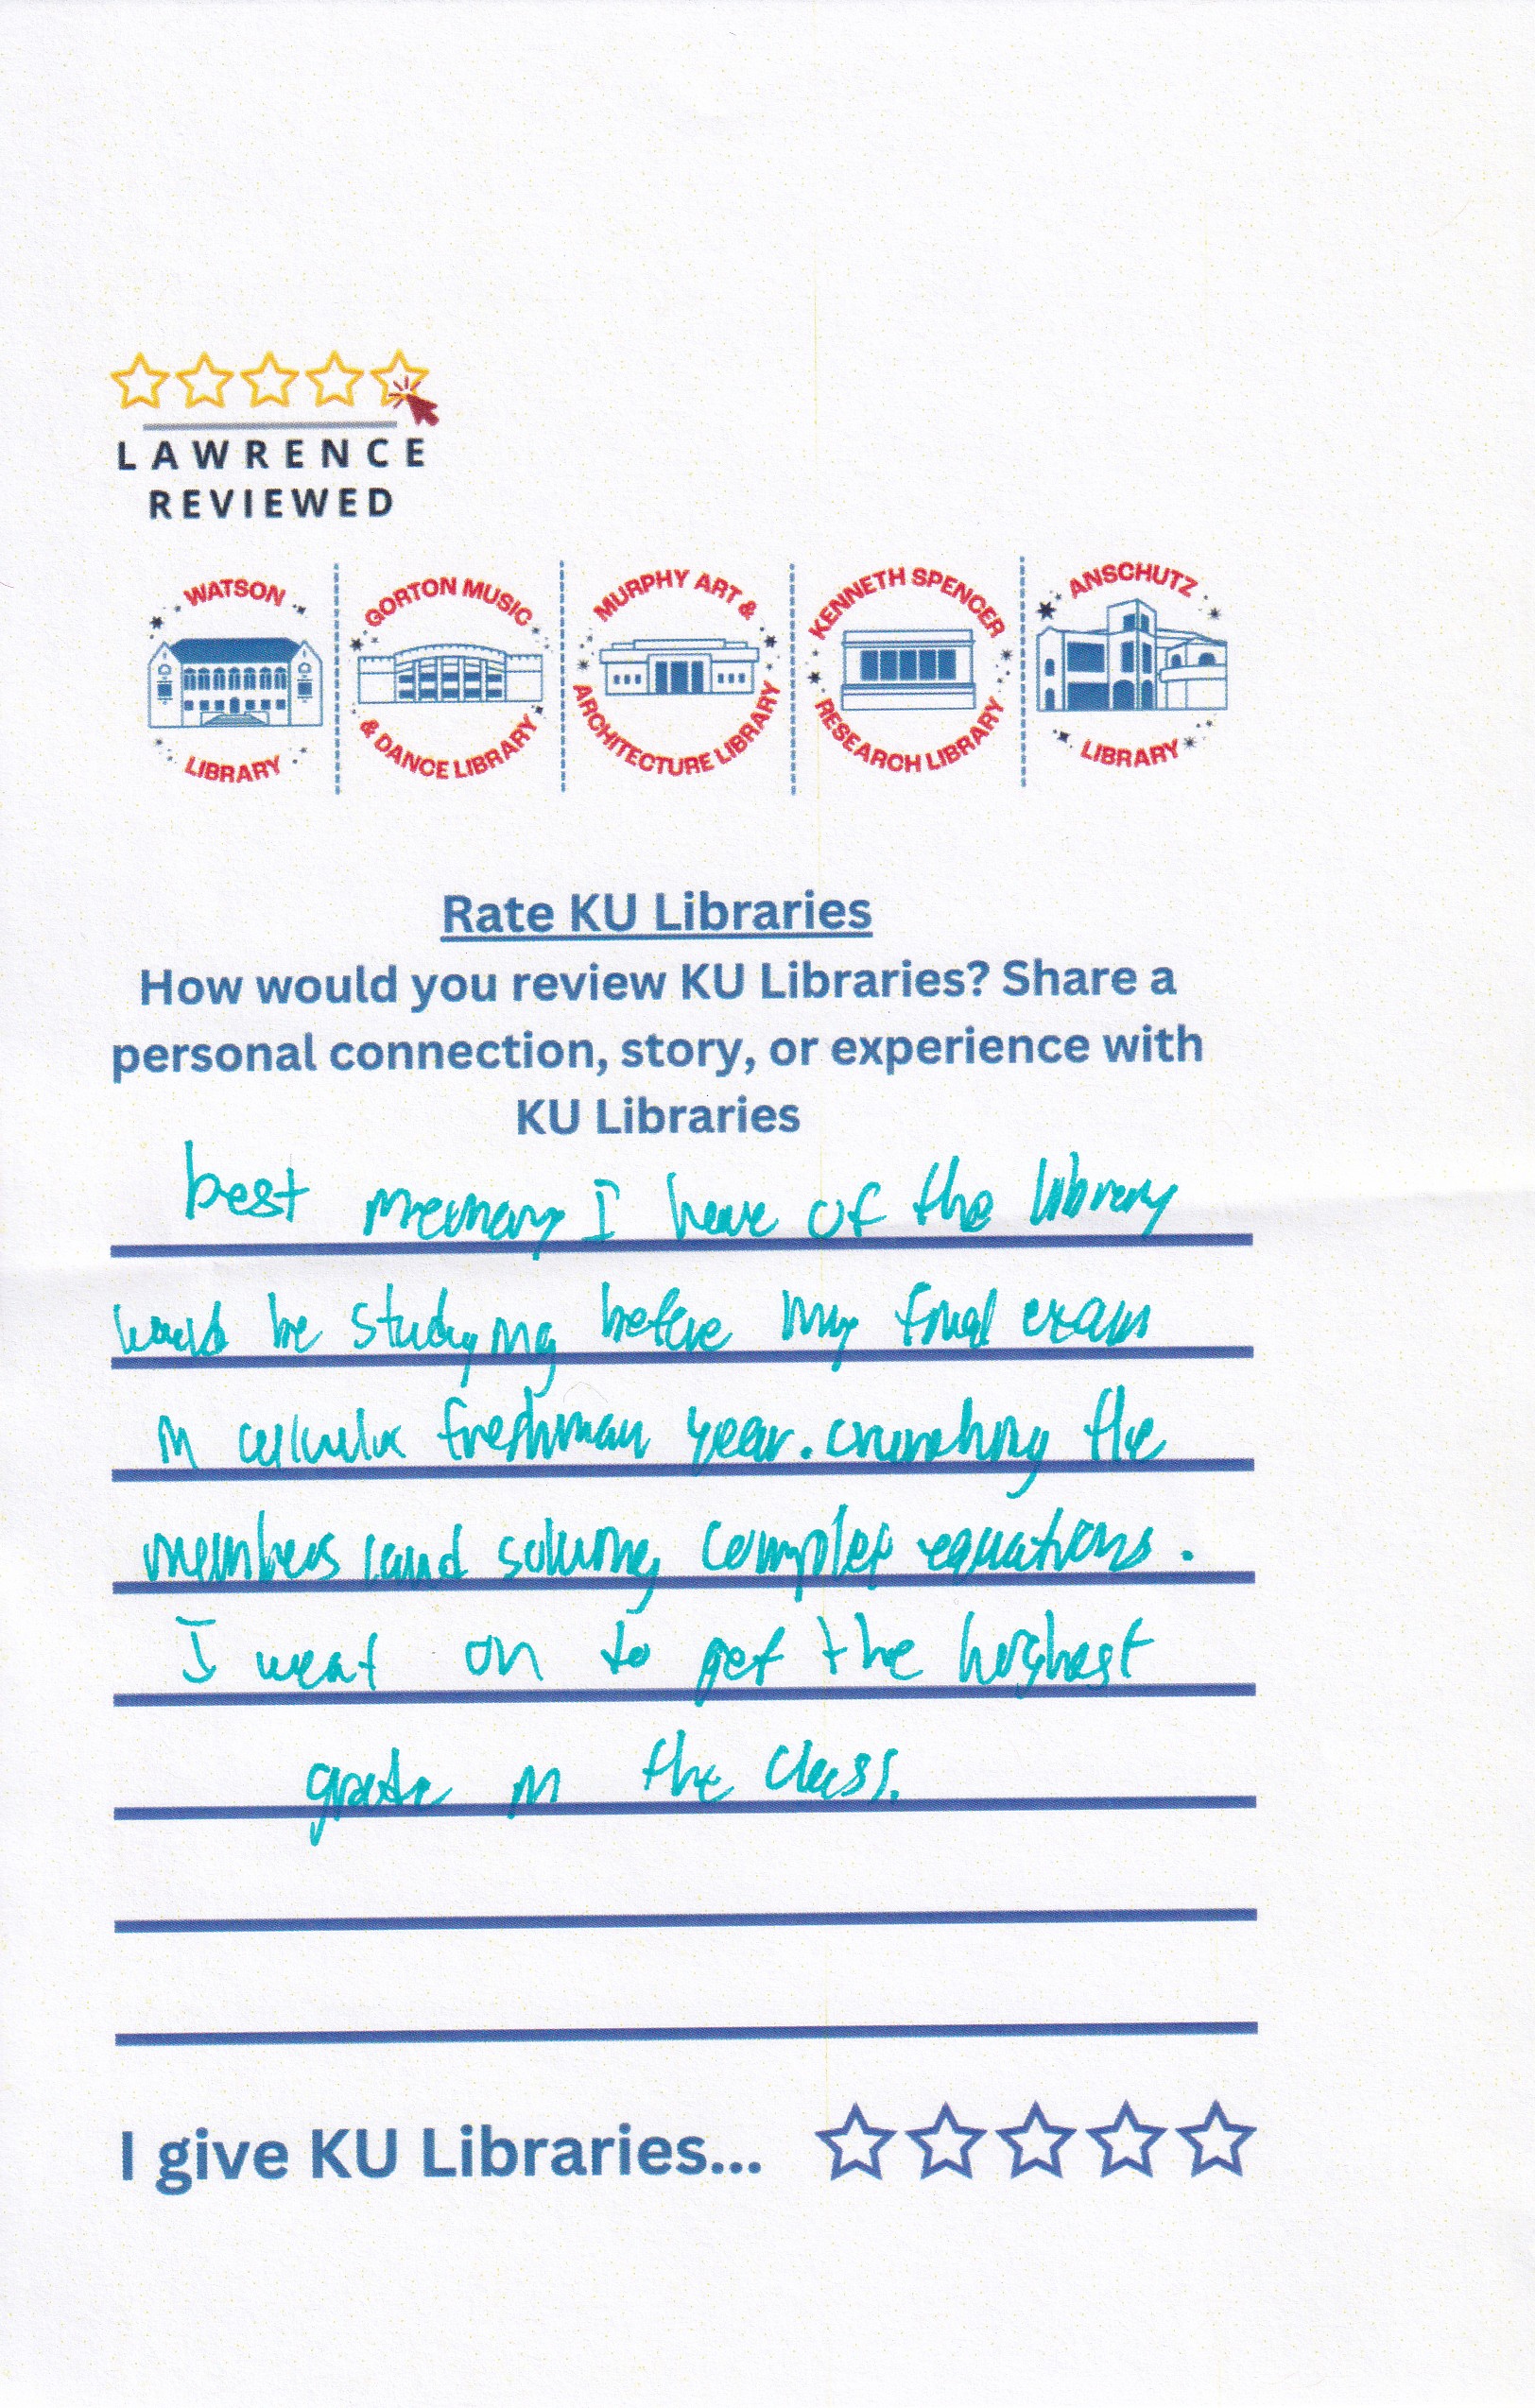 LAWRENCE
REVIEWED
WATSON LIBRARY
GORTON MUSIC & DANCE LIBRARY
MURPHY ART & ARCHITECTURE LIBRARY
KENNETH SPENCER RESEARCH LIBRARY
ANSCHUTZ LIBRARY
Rate KU Libraries
How would you review KU Libraries? Share a
personal connection, story, or experience with
KU Libraries
best memory I have of the library
would be studying before my final exam
in freshman year. crunching the
numbers and solving complex equations.
I went on to get the highest
grade in the class.
I give KU Libraries...